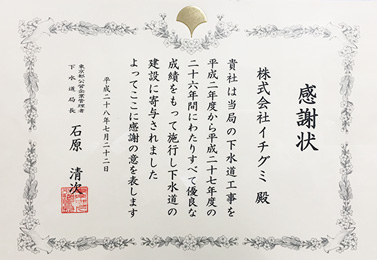 感謝状
株式会社イチグミ 殿
貴社は当局の下水道工事を
平成二年度から平成二十七年度の
二十六年間にわたりすべて優良な
成績をもって施行し下水道の
建設に寄与されました
よってここに感謝の意を表します
平成二十八年七月二十二日
東京都公営企業管理者
下水道局長
石原 清次